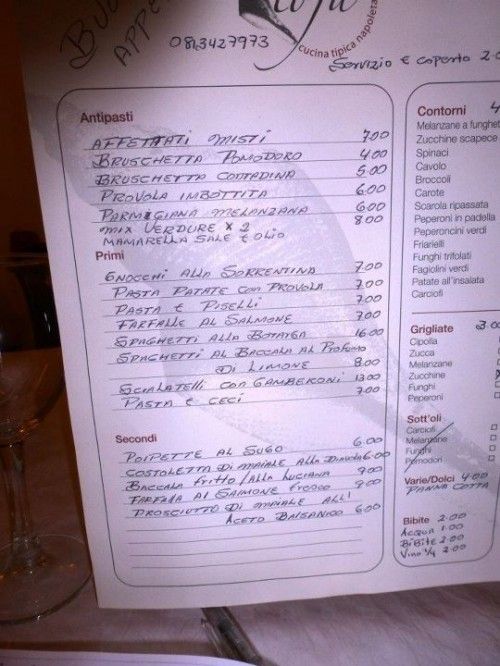 BUON
APPE
0813427973
cucina tipica napoleta
Servizio e coperto 2.0
Antipasti
AFFETTATI MISTI 7.00
BRUSCHETTA POMODORO 4.00
BRUSCHETTA CONTADINA 5.00
PROVOLA IMBOTTITA 6.00
PARMIGIANA MELANZANA 6.00
MIX VERDURE X 2 8.00
MAMARELLA SALE E OLIO
Primi
GNOCCHI ALLA SORRENTINA 7.00
PASTA PATATE CON PROVOLA 7.00
PASTA E PISELLI 7.00
FARFALLE AL SALMONE 7.00
SPAGHETTI ALLA BOTARGA 16.00
SPAGHETTI AL BACCALA AL PROFUMO
DI LIMONE 8.00
SCIALATELLI CON GAMBERONI 13.00
PASTA E CECI 7.00
Secondi
POLPETTE AL SUGO 6.00
COSTOLETTA DI MAIALE ALLA DIAVOLA 6.00
BACCALA FRITTO/ALLA LUCIANA 9.00
FARFALA DI SALMONE FRESCO 8.00
PROSCIUTTO DI MAIALE ALL'
ACETO BALSAMICO 6.00
Contorni 4
Melanzane a funghet
Zucchine scapece
Spinaci
Cavolo
Broccoli
Carote
Scarola ripassata
Peperoni in padella
Peperoncini verdi
Friarielli
Funghi trifolati
Fagiolini verdi
Patate all'insalata
Carciofi
Grigliate 3.00
Cipolla
Zucca
Melanzane
Zucchine
Funghi
Peperoni
Sott'oli
Carciofi
Melanzane
Funghi
Pomodori
Varie/Dolci 4.00
PANNA COTTA
Bibite 2.00
ACQUA 1.00
BIBITE 2.00
Vino 1/4 2.00